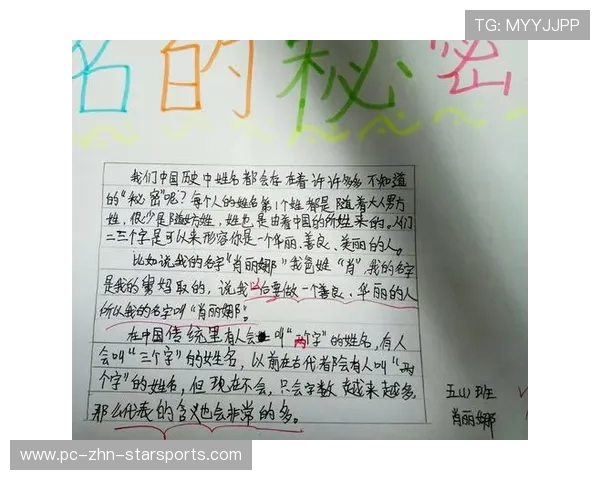 TG: MYYJJPP
名的秘密
我们中国历史中姓名都会存在着许许多多不知道
的“秘密”呢?每个人的姓名第1个姓都是随着大人男方
姓，很少是随女方姓，姓也是由着中国的所姓来的。人们
二三个字是可以来形容你是一个华丽、善良、美丽的人。
比如说我的名字“肖丽娜”我爸姓“肖”，我的名字
是我的舅妈取的，说我以后要做一个善良、华丽的人
所以我的名字叫“肖丽娜”。
在中国传统里有人会叫“两个字”的姓名，有人
会叫“三个字”的姓名，以前在古代都会有人叫“两
个字”的姓名，但现在不会，只会字数越来越多，
那么代表的含义也会非常的多。
五山班
肖丽娜
www.pc-zhn-starsports.com